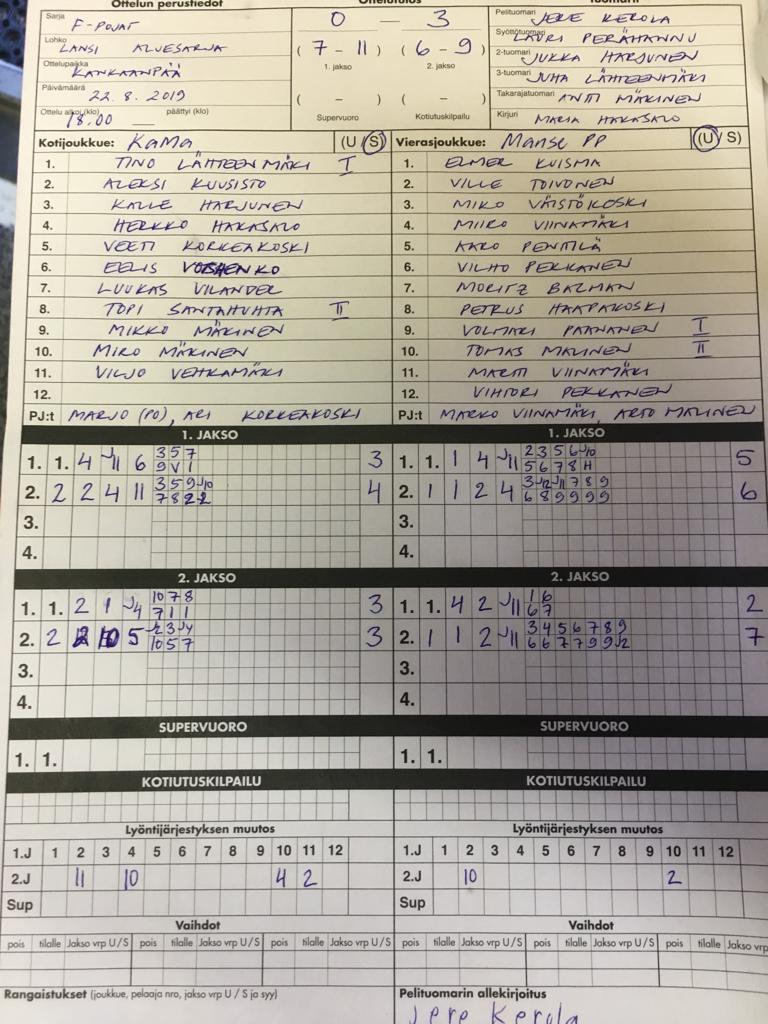 Ottelun perustiedot
Sarja F-POJAT
Lohko LÄNSI ALUESARJA
Ottelupaikka KANKAANPÄÄ
Päivämäärä 22.8.2019
Ottelu alkoi (klo) 18.00 päättyi (klo)
0 – 3
( 7 – 11 ) ( 6 – 9 )
1. jakso 2. jakso
( – ) ( – )
Supervuoro Kotiutuskilpailu
Pelituomari JERE KEROLA
Syöttötuomari LAURI PERÄHANNU
2-tuomari JUKKA HARJUNEN
3-tuomari JUHA LÄHTEENMÄKI
Takarajatuomari ANTTI MÄKINEN
Kirjuri MARIA HAKASALO
Kotijoukkue: KaMa (U/S)
1. TINO LÄHTEENMÄKI I
2. ALEKSI KUUSISTO
3. KALLE HARJUNEN
4. HERKKO HAKASALO
5. VEETI KORKEAKOSKI
6. EELIS
7. LUUKAS VILANDER
8. TOPI SANTAHUHTA II
9. MIKKO MÄKINEN
10. MIRO MÄKINEN
11. VILJO VEHKAMÄKI
12.
PJ:t MARJO (PO), ARI KORKEAKOSKI
Vierasjoukkue: Manse PP (U/S)
1. ELMER KUISMA
2. VILLE TOIVONEN
3. MIKO VÄISTÖKOSKI
4. MIIRO VIINAMÄKI
5. AARO PENTTILÄ
6. VILHO PEKKANEN
7. MORITZ BALMAN
8. PETRUS HAAPAKOSKI
9. VOLMARI PAANANEN I
10. TOMAS MALINEN II
11. MARTTI VIINAMÄKI
12. VIHTORI PEKKANEN
PJ:t MARKO VIINAMÄKI, ARTO MALINEN
1. JAKSO
1. 1. 4 J11 6 3 5 7 3
9 V 1
2. 2 2 4 11 3 5 9 J10 4
7 8 2 2
3.
4.
1. JAKSO
1. 1. 1 4 J11 2 3 5 6 J10 5
5 6 7 8 H
2. 1 1 2 4 3 J2 J11 7 8 9 6
6 8 9 9 9 9
3.
4.
2. JAKSO
1. 1. 2 1 J4 10 7 8 3
7 1 1
2. 2 2 10 5 J2 3 J4 3
10 5 7
3.
4.
2. JAKSO
1. 1. 4 2 J11 1 6 2
6 7
2. 1 1 2 J11 3 4 5 6 7 8 9 7
6 6 7 7 9 9 J2
3.
4.
SUPERVUORO SUPERVUORO
1. 1. 1. 1.
KOTIUTUSKILPAILU KOTIUTUSKILPAILU
Lyöntijärjestyksen muutos
1.J 1 2 3 4 5 6 7 8 9 10 11 12
2.J 11 10 4 2
Sup
Lyöntijärjestyksen muutos
1.J 1 2 3 4 5 6 7 8 9 10 11 12
2.J 10 2
Sup
Vaihdot Vaihdot
pois tilalle Jakso vrp U/S pois tilalle Jakso vrp U/S pois tilalle Jakso vrp U/S
pois tilalle Jakso vrp U/S pois tilalle Jakso vrp U/S pois tilalle Jakso vrp
Rangaistukset (joukkue, pelaaja nro, jakso vrp U / S ja syy)
Pelituomarin allekirjoitus
Jere Kerola